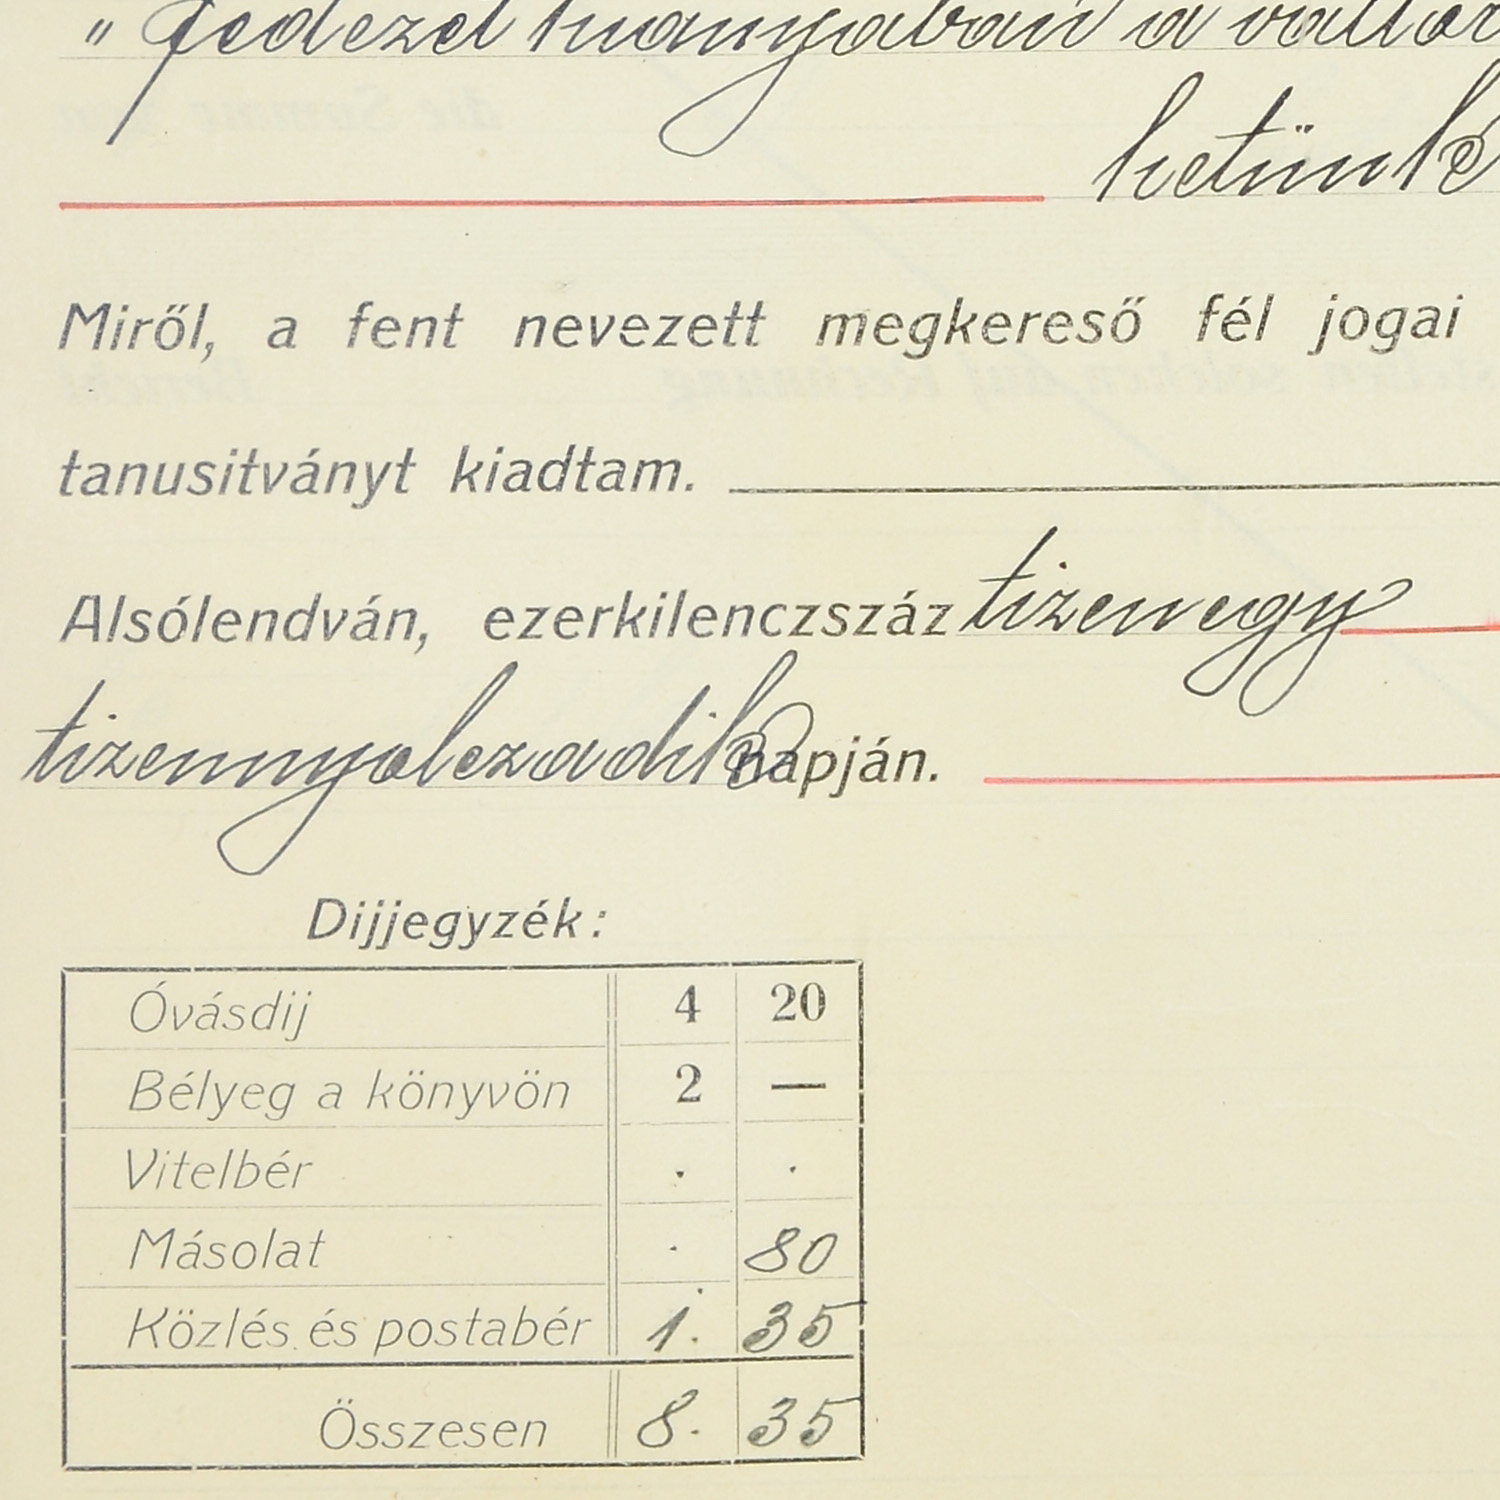 „ fedezet hiányában a váltót
hetünk
Miről, a fent nevezett megkereső fél jogai
tanusitványt kiadtam.
Alsólendván, ezerkilenczszáz tizenegy
tizennyolczadik napján.
Dijjegyzék:
Óvásdij 4 20
Bélyeg a könyvön 2 —
Vitelbér . .
Másolat . 80
Közlés és postabér 1. 35
Összesen 8. 35